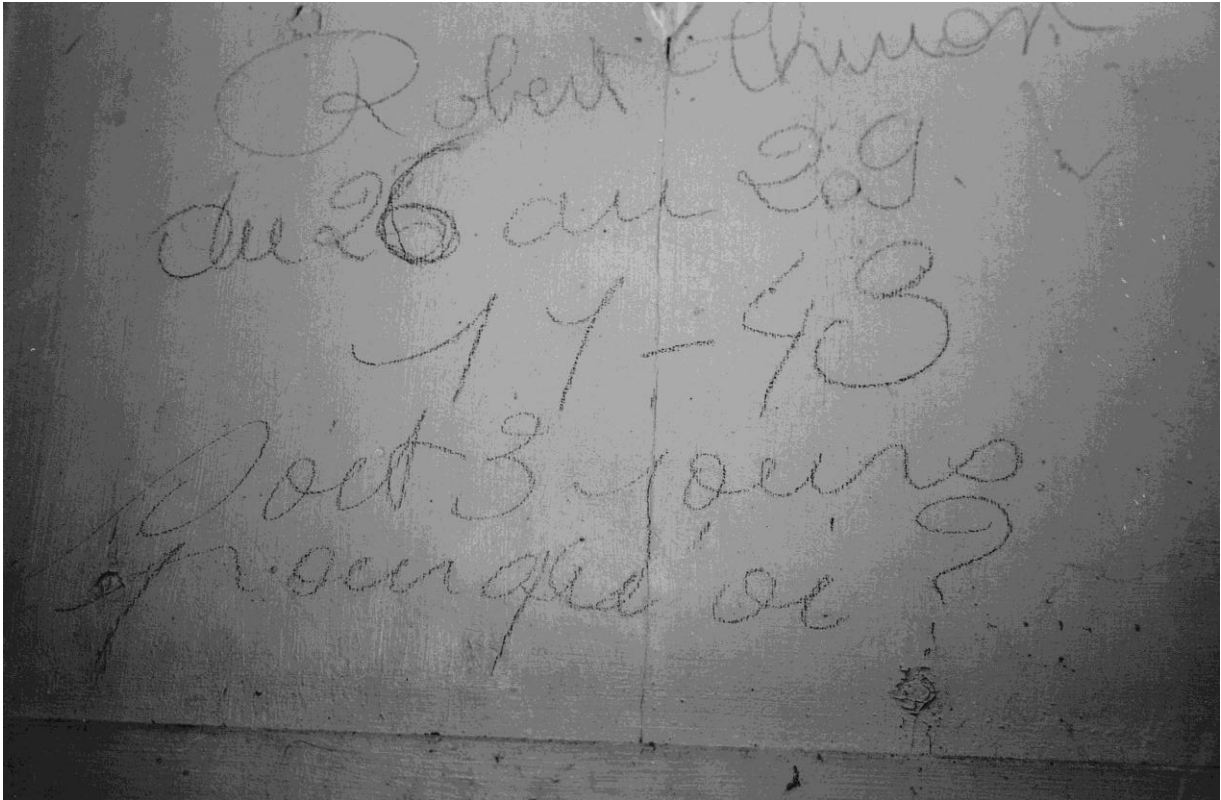 Robert
du 26 au 29
11-43
Soit 3 jours
pourquoi ? .....